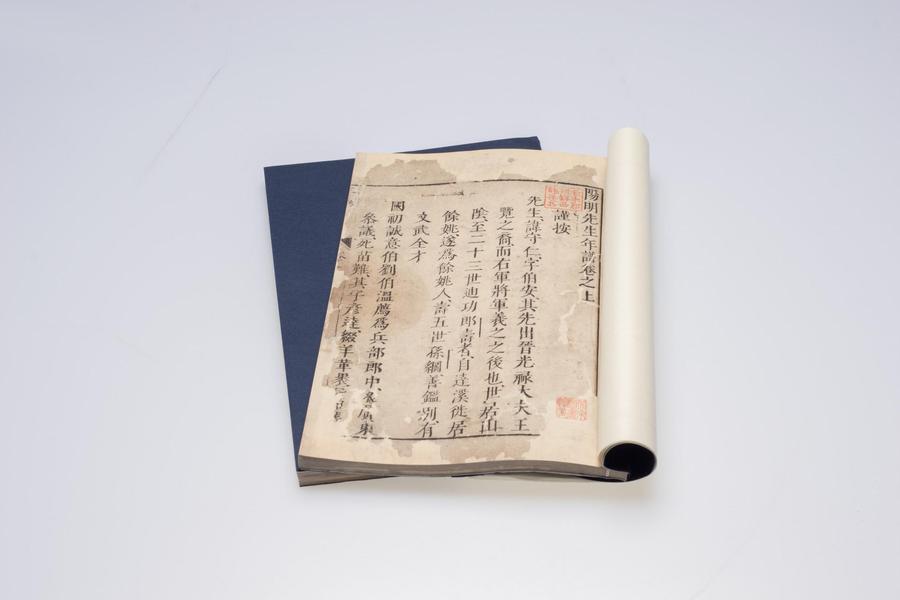 陽明先生年譜卷之上
謹按
先生諱守仁字伯安其先出晉光禄大夫王
覽之裔而右軍將軍羲之之後也世居山
陰至二十三世迪功郎壽者自達溪徙居
餘姚遂為餘姚人壽五世孫綱善鑑別有
文武全才
國初誠意伯劉伯溫薦為兵部郎中廣東
參議死苗難其子彥達綴羊革裹